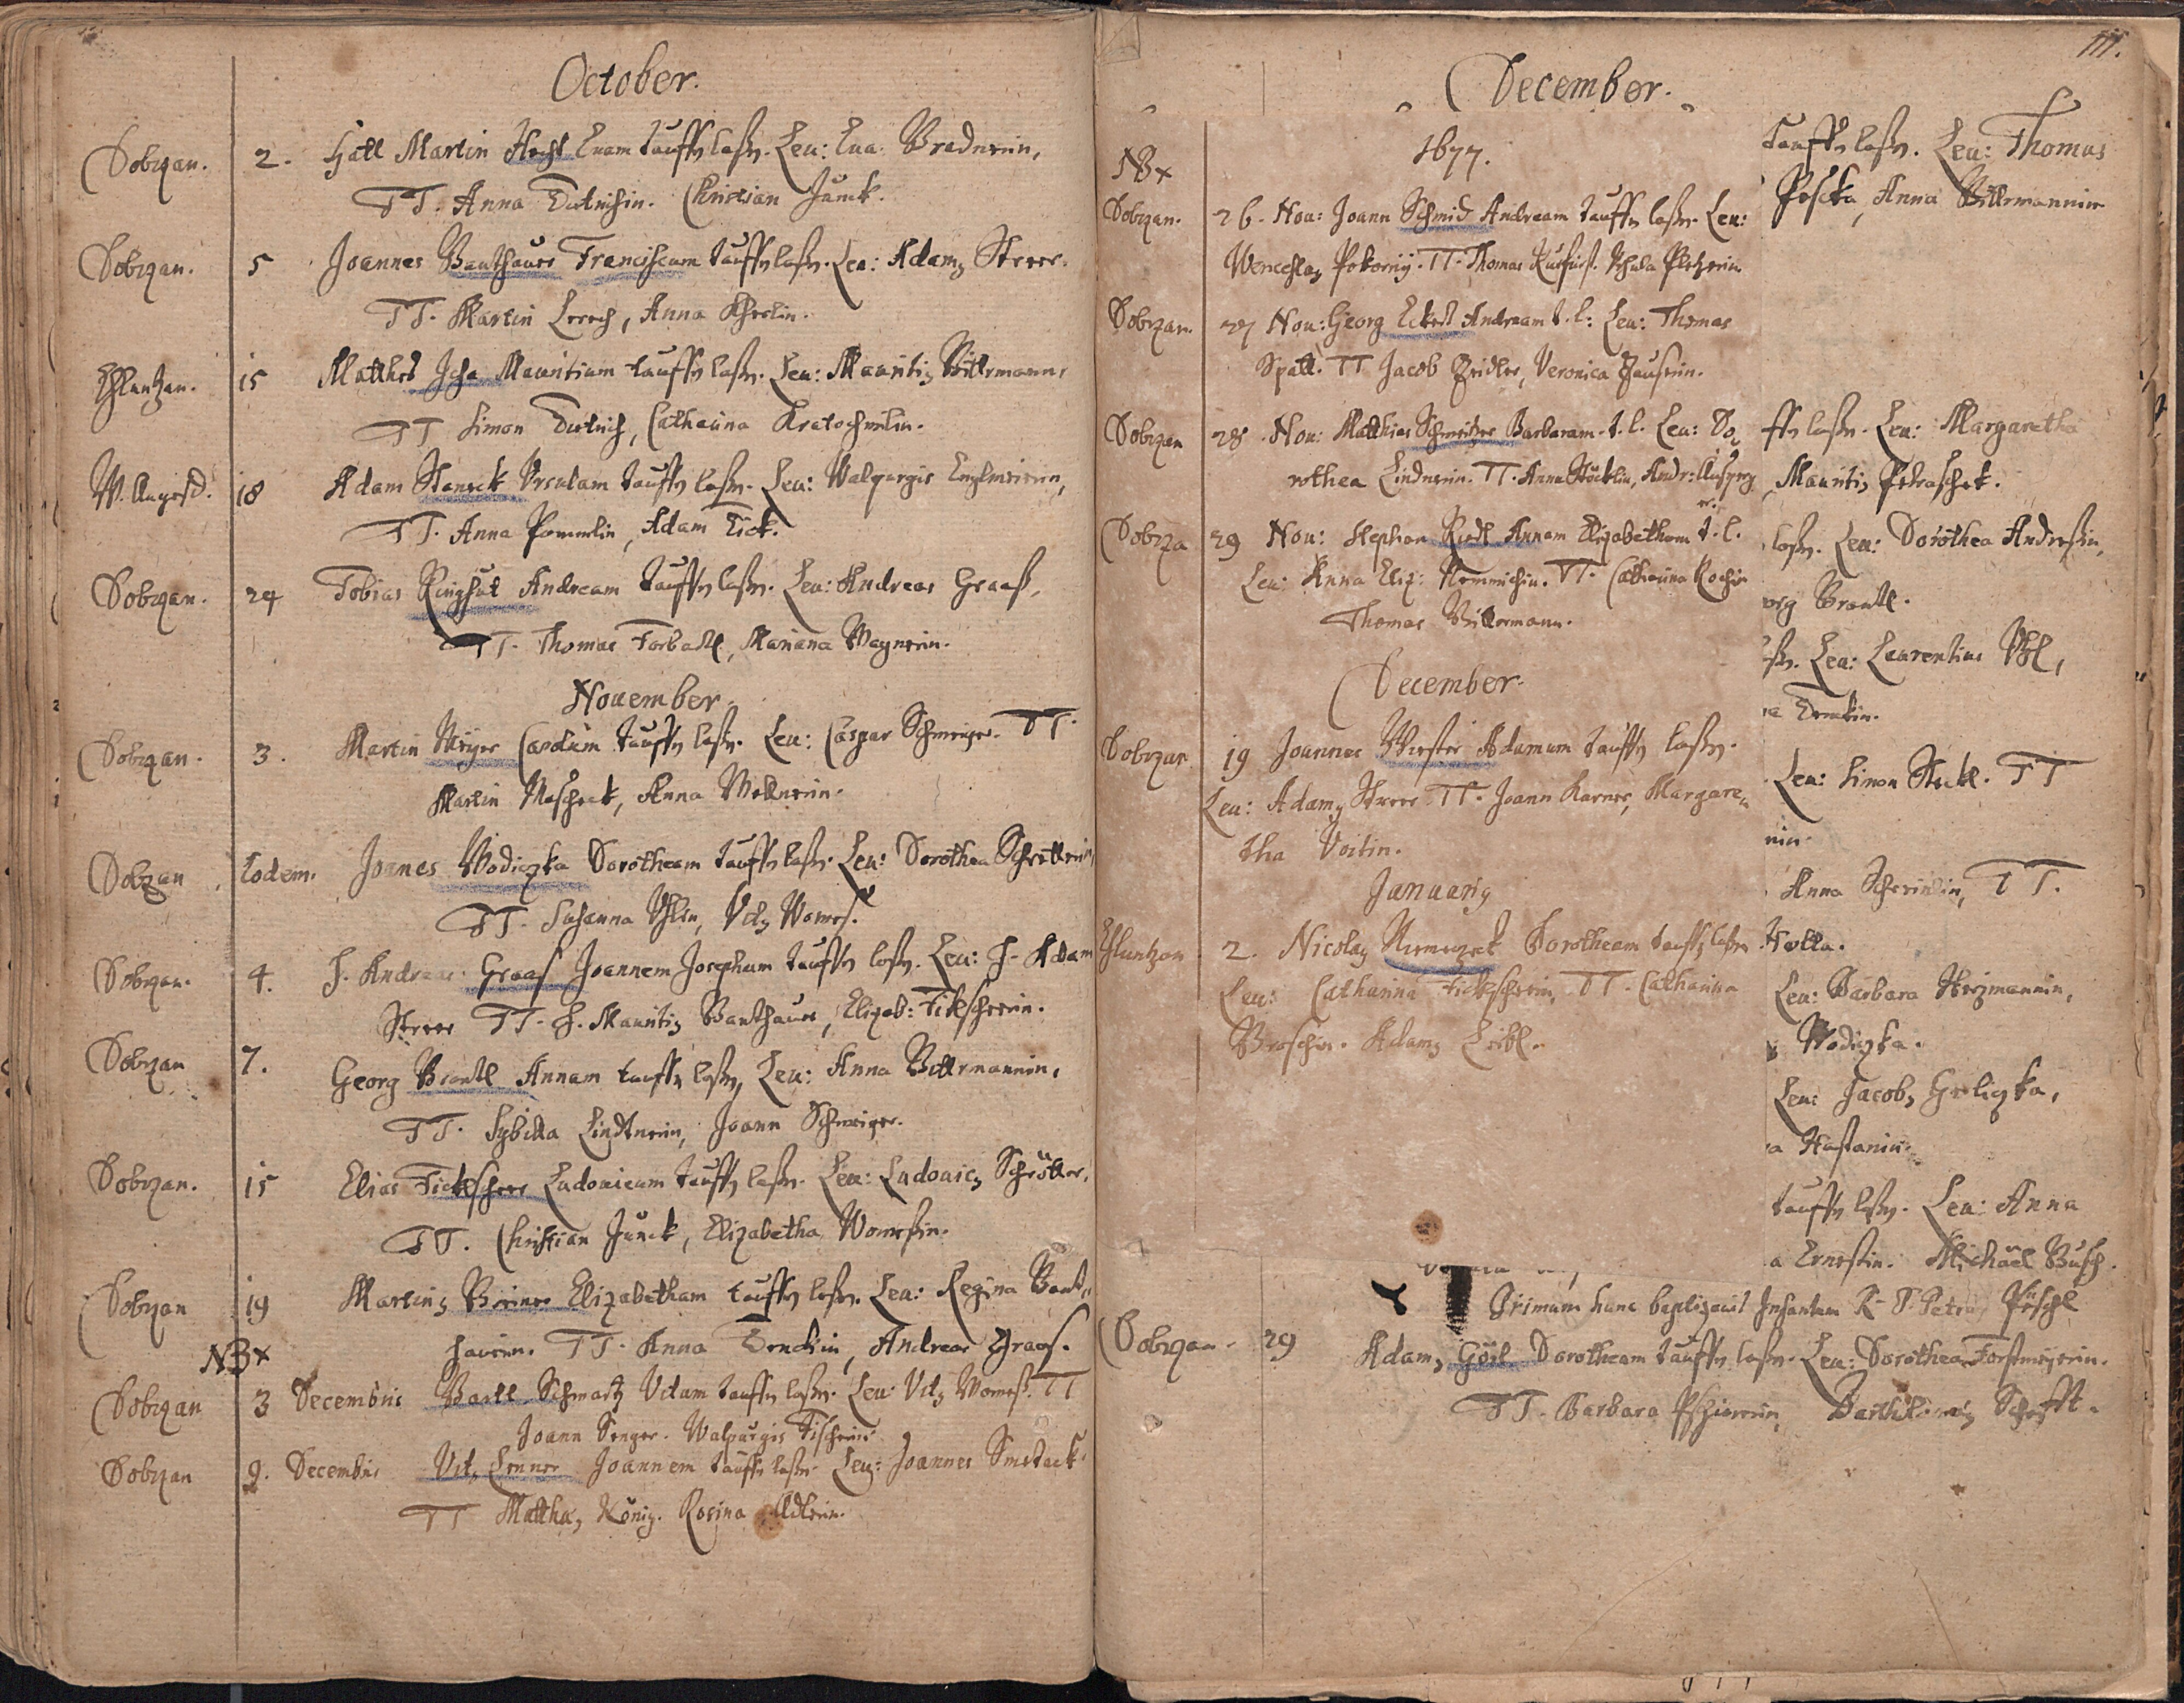 October.
Dobrzan. 2. Hatt Martin Hechl Euam tauffen laßen. Leu: Eua Bradnerin,
TT. Anna Dietrichin. Christian Junck.
Dobrzan. 5 Joannes Bauthauer Franciscum tauffen laßen. Leu: Adamus Streer.
TT. Martin Lerch, Anna
15 Matthes Mauritium tauffen laßen. Leu: Mauritius Bittermann,
TT Simon Dietrich, Catharina Kratochwilin.
18 Adam Staneck Vrsulam tauffen laßen. Leu: Walpurgis Englmeierin,
TT. Anna Pommelin, Adam Eick.
Dobrzan. 24 Tobias Ringhut Andream tauffen laßen. Leu: Andreas Graaß,
TT. Thomas Forbatl, Mariana Wagnerin.
Nouember.
Dobrzan. 3. Martin Meyer Carolum tauffen laßen. Leu: Caspar Schweiger. TT
Martin Mascheck, Anna Wellnerin.
Dobrzan Eodem. Joanes Wodiczka Dorotheam tauffen laßen. Leu: Dorothea Schrotterin,
TT. Susanna Vhlin, Vitus Womes.
Dobrzan. 4. H. Andreas Graaß Joannem Josephum tauffen laßen. Leu: H. Adam
Streer TT. H. Mauritius Bauthauer, Elizab: Fickscherin.
Dobrzan 7. Georg Brantl Annam tauffen laßen, Leu: Anna Bittermannin,
TT. Sybilla Lindtnerin, Joann Schweiger.
Dobrzan. 15 Elias Fickscheer Ludouicum tauffen laßen. Leu: Ludouicus Schrötter,
TT. Christian Junck, Elizabetha Womeßin.
Dobrzan 19 Martinus Elizabetham tauffen laßen. Leu: Regina Baut„
hauerin. TT. Anna Andreas Graaß.
NB+
Dobrzan 3 Decembris Bartl Schwartz Vitum tauffen laßen. Leu: Vitus Womeß. TT
Joann Senger. Walpurgis Fischerin
Dobrzan 9. Decembris Vitus Lenner Joannem tauffen laßen. Leu: Joannes Smetack.
TT Matthaeus König. Rosina Adlerin.
111.
December.
NB+ 1677.
Dobrzan. 26. Nou: Joann Schmid Andream tauffen laßen. Leu:
Wenceslaus Pokorny. TT. Thomas
Dobrzan. 27 Nou: Georg Eckert Andream t. l: Leu: Thomas
Spatt. TT Jacob Zeidler, Veronica
Dobrzan 28. Nou: Matthias Schweitzer Barbaram t. l. Leu: Do„
rothea Lindnerin. TT. Anna Stöcklin, Andr:
Dobrza 29 Nou: Stephan Riedl Annam Elizabetham t. l.
Leu: Anna Eliz: TT. Catharina Kochin
Thomas Bittermann.
December.
Dobrzan 19 Joannes Adamum tauffen laßen.
Leu: Adamus Streer. TT. Joann Karner, Margare„
tha Voitin.
Januarius
2. Nicolaus Niemeczek Dorotheam tauffen laßen
Leu: Catharina Fickscherin, TT. Catharina
Adamus Leibl.
tauffen laßen. Leu: Thomas
Peschka, Anna Bittermannin
ffen laßen. Leu: Margaretha
Mauritius Petraschek.
laßen. Leu: Dorothea
org Brantl.
ßen. Leu: Laurentius Vhl,
Leu: Simon Stickl. TT
nin.
Anna TT.
Leu: Barbara
Wodiczka.
Leu: Jacobus
a
tauffen laßen. Leu: Anna
a Ernestin. Michäel Busch.
Primum hunc baptizauit Infantem R. P. Petrus Pöschl
Dobrzan. 29 Adamus Dorotheam tauffen laßen. Leu: Dorothea Forstmeyerin.
TT. Barbara Bartholomaeus